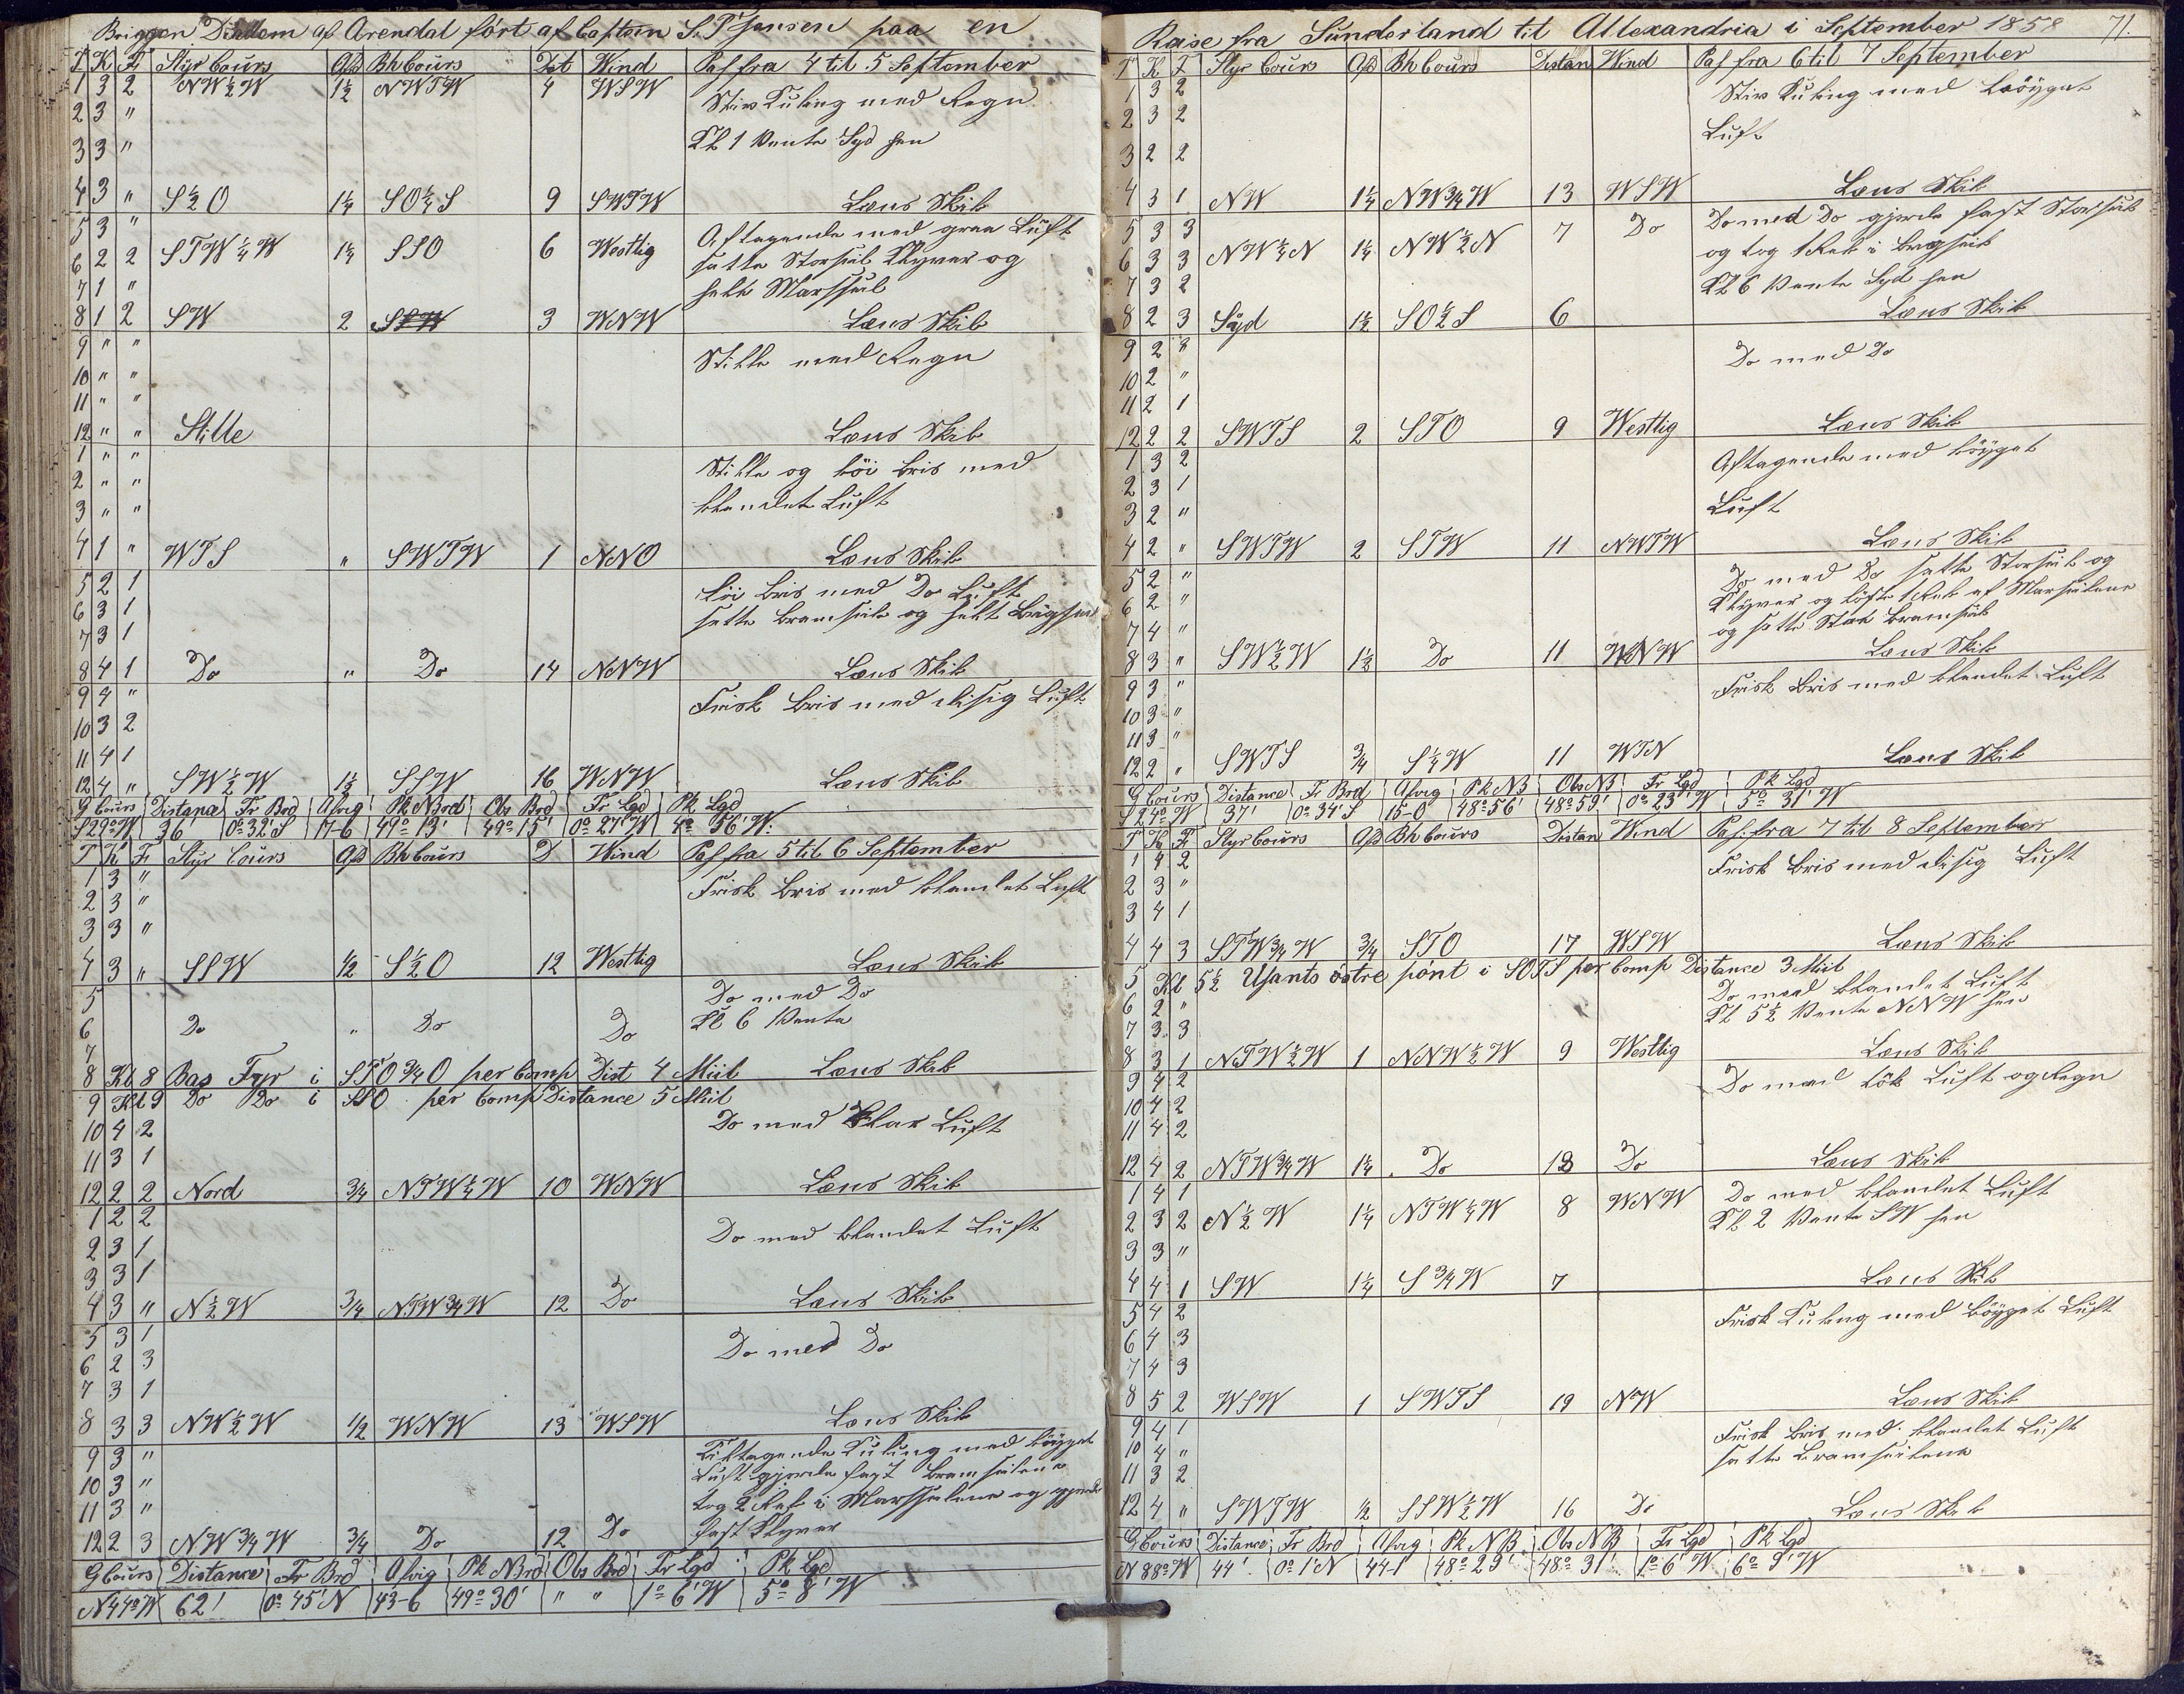 Briggen Diadem af Arendal fört af Captein S. P. Jensen paa en
T K F Styr Cours Afd Bh Cours Dist Wind Pas fra 4 til 5 September
1 3 2 NW½W 1½ NWTW 4 WSW Stiv Kuling med Regn
2 3 "
3 3 " Kl 1 Vente Syd hen
4 3 " S½O 1¼ SO¼S 9 SWTW Læns Skib
5 3 " Aftagende med graa Luft
6 2 2 STW¼W 1¼ SSO 6 Westlig satte Storseil Klyver og
7 1 " heelt Marsseil
8 1 2 SW 2 SSW 3 WNW Læns Skib
9 " " Stille med Regn
10 " "
11 " "
12 " " Stille Læns Skib
1 " " Stille og löi Bris med
2 " "
3 " " blandet Luft
4 1 " WTS " SWTW 1 NNO Læns Skib
5 2 1 Löi Bris med Do Luft
6 3 1 satte Bramseile og heelt Brigseil
7 3 1
8 4 1 Do " Do 14 NNW Læns Skib
9 4 " Frisk Bris med disig Luft
10 3 2
11 4 1
12 4 " SW½W 1½ SSW 16 WNW Læns Skib
G Cours Distance Fr Brd Afvig Pk N Brd Obs Brd Fr Lgd Pk Lgd
S 29° W 36' 0° 32' S 17-6 49° 13' 49° 15' 0° 27' W 4° 56' W
T K F Styr Cours Afd Bh Cours D Wind Pas fra 5 til 6 September
1 3 " Frisk Bris med blandet Luft
2 3 "
3 3 "
4 3 " SSW ½ S½O 12 Westlig Læns Skib
5 Do med Do
6 Do " Do Do Kl 6 Vente
7
8 Kl 8 Bas Fyr i STO¾O per Comp Dist 4 Miil Læns Skib
9 Kl 9 Do Do i SSO per Comp Distance 5 Miil
10 4 2 Do med Klar Luft
11 3 1
12 2 2 Nord ¾ NTW¼W 10 WNW Læns Skib
1 2 2 Do med blandet Luft
2 3 1
3 3 1
4 3 " N½W ¾ NTW¾W 12 Do Læns Skib
5 3 1 Do med Do
6 2 3
7 3 1
8 3 3 NW½W ½ WNW 13 WSW Læns Skib
9 3 " Tiltagende Kuling med böyget
10 3 " Luft gjorde fast Bramseilene
11 3 " tog 2 Reb i Marsseilene og gjorde
12 2 3 NW¾W ¾ Do 12 Do fast Klyver
G Cours Distance Fr Brd Afvig Pk N Brd Obs Brd Fr Lgd Pk Lgd
N 44° W 62' 0° 45' N 43-6 49° 30' " " 1° 6' W 5° 8' W
Reise fra Sunderland til Allexandria i September 1858 71.
T K F Styr Cours Afd Bh Cours Distan Wind Pas fra 6 til 7 September
1 3 2 Stiv Kuling med böyget
2 3 2 Luft
3 2 2
4 3 1 NW 1¼ NW¾W 13 WSW Læns Skib
5 3 3 Do med Do gjorde fast Storseil
6 3 3 NW¼N 1¼ NW½N 7 Do og tog 1 Reb i Brigseil
7 3 2 Kl 6 Vente Syd hen
8 2 3 Syd 1½ SO½S 6 Læns Skib
9 2 " Do med Do
10 2 "
11 2 1
12 2 2 SWTS 2 STO 9 Westlig Læns Skib
1 3 2 Aftagende med böyget
2 3 1
3 2 " Luft
4 2 " SWTW 2 STW 11 NWTW Læns Skib
5 2 " Do med Do satte Storseil og
6 2 " Klyver og löste 1 Reb af Marseilene
7 4 " og satte Stor Bramseil
8 3 " SW½W 1½ Do 11 WNW Læns Skib
9 3 " Frisk Bris med blandet Luft
10 3 "
11 3 "
12 2 " SWTS ¾ S¼W 11 WTN Læns Skib
G Cours Distance Fr Brd Afvig Pk N B Obs N B Fr Lgd Pk Lgd
S 24° W 37' 0° 34' S 15-0 48° 56' 48° 59' 0° 23' W 5° 31' W
T K F Styr Cours Afd Bh Cours Distan Wind Pas fra 7 til 8 September
1 4 2 Frisk Bris med disig Luft
2 3 "
3 4 1
4 4 3 STW¾W ¾ STO 17 WSW Læns Skib
5 Kl 5½ Usants östre pönt i SOTS per Comp Distance 3 Miil
6 2 " Do med blandet Luft
7 3 3 Kl 5½ Vente NNW hen
8 3 1 NTW½W 1 NNW½W 9 Westlig Læns Skib
9 4 2 Do med tök Luft og Regn
10 4 2
11 4 2
12 4 2 NTW¾W 1¼ Do 18 Do Læns Skib
1 4 1 Do med blandet Luft
2 3 2 N½W 1¼ NTW¼W 8 WNW Kl 2 Vente SW hen
3 3 "
4 4 1 SW 1¼ S¾W 7 Læns Skib
5 4 2 Frisk Kuling med böyget Luft
6 4 3
7 4 3
8 5 2 WSW 1 SWTS 19 NW Læns Skib
9 4 1 Frisk Bris med blandet Luft
10 4 " satte Bramseilene
11 3 2
12 4 " SWTW ½ SSW½W 16 Do Læns Skib
G Cours Distance Fr Brd Afvig Pk N B Obs N B Fr Lgd Pk Lgd
N 88° W 44' 0° 1' N 44-1 48° 29' 48° 31' 1° 6' W 6° 9' W